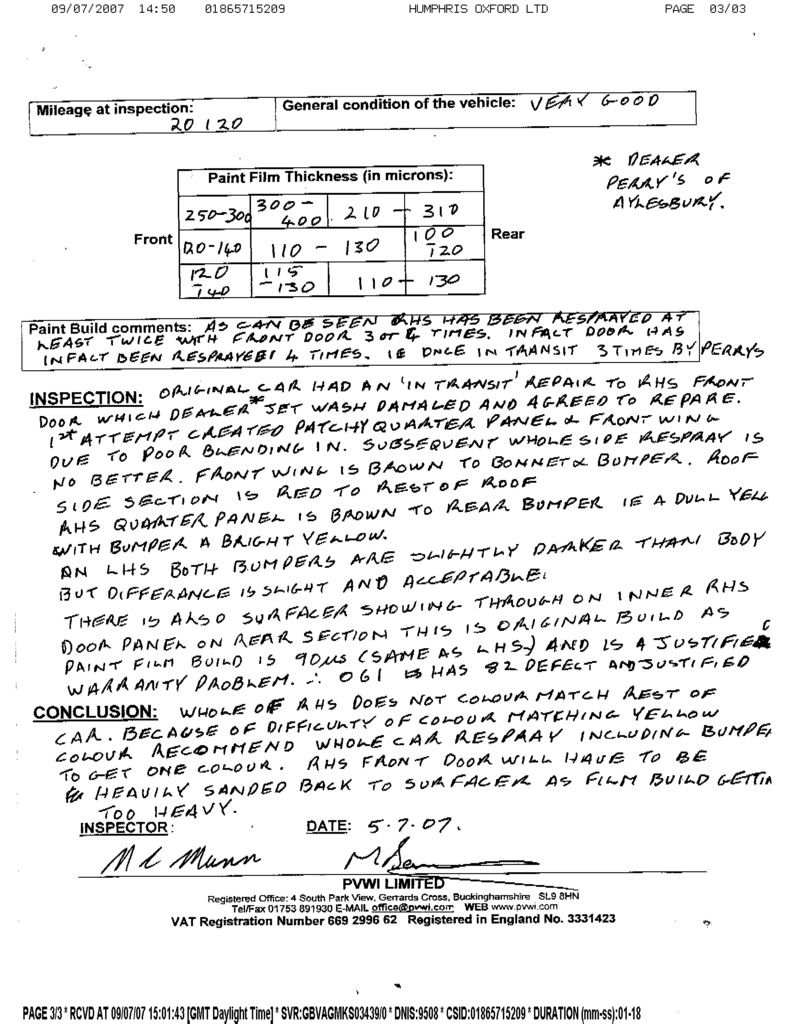 09/07/2007 14:50 01865715209 HUMPHRIS OXFORD LTD PAGE 03/03
Mileage at inspection: 20120
General condition of the vehicle: VERY GOOD
* DEALER
PERRY'S OF
AYLESBURY.
Paint Film Thickness (in microns):
250-300 300-400 210 - 310
Front 120-140 110 - 130 100 - 120 Rear
120 - 140 115 - 130 110 - 130
Paint Build comments: AS CAN BE SEEN RHS HAS BEEN RESPRAYED AT
LEAST TWICE WITH FRONT DOOR 3 OR 4 TIMES. INFACT DOOR HAS
INFACT BEEN RESPRAYED 4 TIMES. IE ONCE IN TRANSIT 3 TIMES BY PERRYS
INSPECTION: ORIGINAL CAR HAD AN 'IN TRANSIT' REPAIR TO RHS FRONT
DOOR WHICH DEALER* JET WASH DAMAGED AND AGREED TO REPARE.
1st ATTEMPT CREATED PATCHY QUARTER PANEL & FRONT WING
DUE TO POOR BLENDING IN. SUBSEQUENT WHOLE SIDE RESPRAY IS
NO BETTER. FRONT WING IS BROWN TO BONNET & BUMPER. ROOF
SIDE SECTION IS RED TO REST OF ROOF
RHS QUARTER PANEL IS BROWN TO REAR BUMPER IE A DULL YELL
WITH BUMPER A BRIGHT YELLOW.
ON LHS BOTH BUMPERS ARE SLIGHTLY DARKER THAN BODY
BUT DIFFERANCE IS SLIGHT AND ACCEPTABLE.
THERE IS ALSO SURFACER SHOWING THROUGH ON INNER RHS
DOOR PANEL ON REAR SECTION THIS IS ORIGINAL BUILD AS
PAINT FILM BUILD IS 90µs (SAME AS LHS) AND IS A JUSTIFIED
WARRANTY PROBLEM. ∴ OGI HAS 82 DEFECT AND JUSTIFIED
CONCLUSION: WHOLE OF RHS DOES NOT COLOUR MATCH REST OF
CAR. BECAUSE OF DIFFICULTY OF COLOUR MATCHING YELLOW
COLOUR RECOMMEND WHOLE CAR RESPRAY INCLUDING BUMPE
TO GET ONE COLOUR. RHS FRONT DOOR WILL HAVE TO BE
HEAVILY SANDED BACK TO SURFACER AS FILM BUILD GETTIN
TOO HEAVY.
INSPECTOR: DATE: 5.7.07.
M C Mann
PVWI LIMITED
Registered Office: 4 South Park View, Gerrards Cross, Buckinghamshire SL9 8HN
Tel/Fax 01753 891930 E-MAIL office@pvwi.com WEB www.pvwi.com
VAT Registration Number 669 2996 62 Registered in England No. 3331423
PAGE 3/3 * RCVD AT 09/07/07 15:01:43 [GMT Daylight Time] * SVR:GBVAGMKS03439/0 * DNIS:9508 * CSID:01865715209 * DURATION (mm-ss):01-18